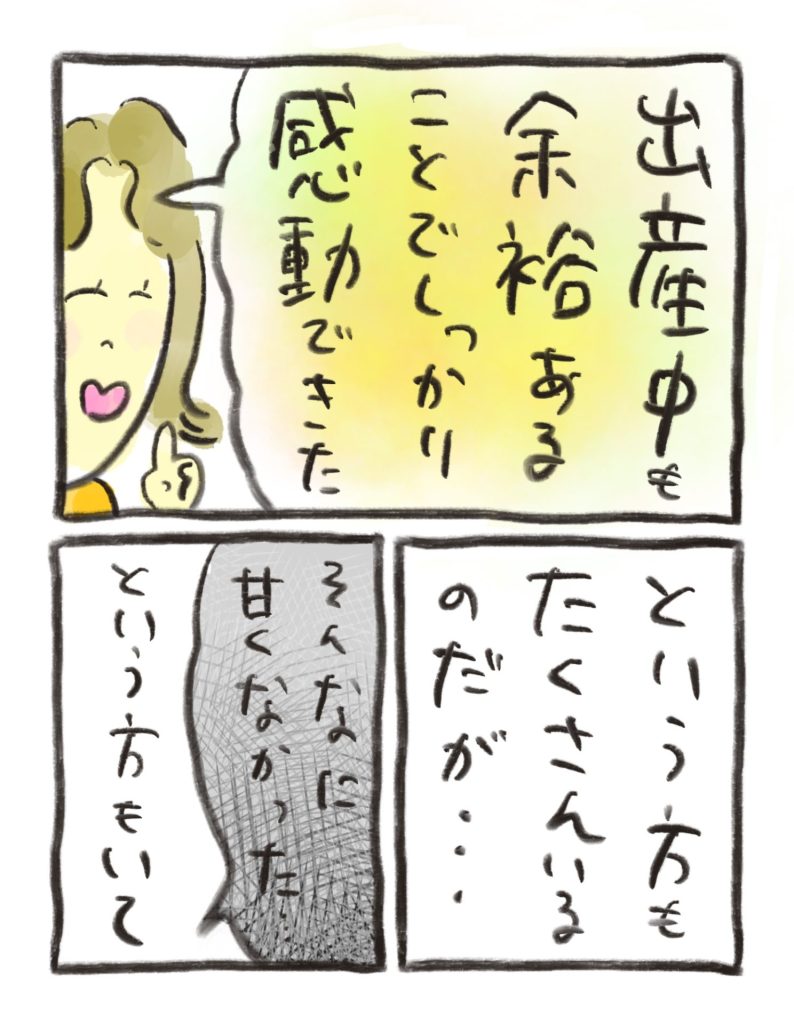 出産中も
余裕ある
ことでしっかり
感動できた
という方も
たくさんいる
のだが・・・
そんなに
甘くなかった…
という方もいて